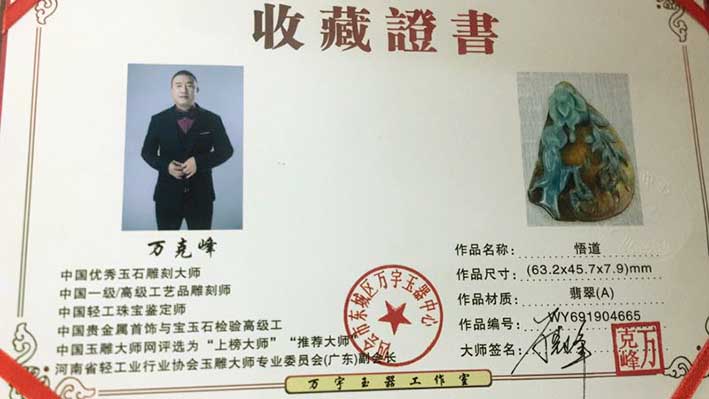 收藏證書
万克峰
中国优秀玉石雕刻大师
中国一级/高级工艺品雕刻师
中国轻工珠宝鉴定师
中国贵金属首饰与宝玉石检验高级工
中国玉雕大师网评选为“上榜大师”“推荐大师”
河南省轻工业行业协会玉雕大师专业委员会(广东)副会长
作品名称: 悟道
作品尺寸: (63.2x45.7x7.9)mm
作品材质: 翡翠(A)
作品编号: WY691904665
大师签名:
万克峰
市东城区万宇玉器中心
万宇玉器工作室